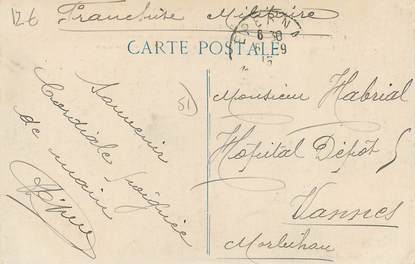 126
Franchise Militaire
CARTE POSTALE
6 30
6 9
15
51
Souvenir
Cordiale poignée
de main
Monsieur Habrial
Hôpital Dépôt 5
Vannes
Morbihan